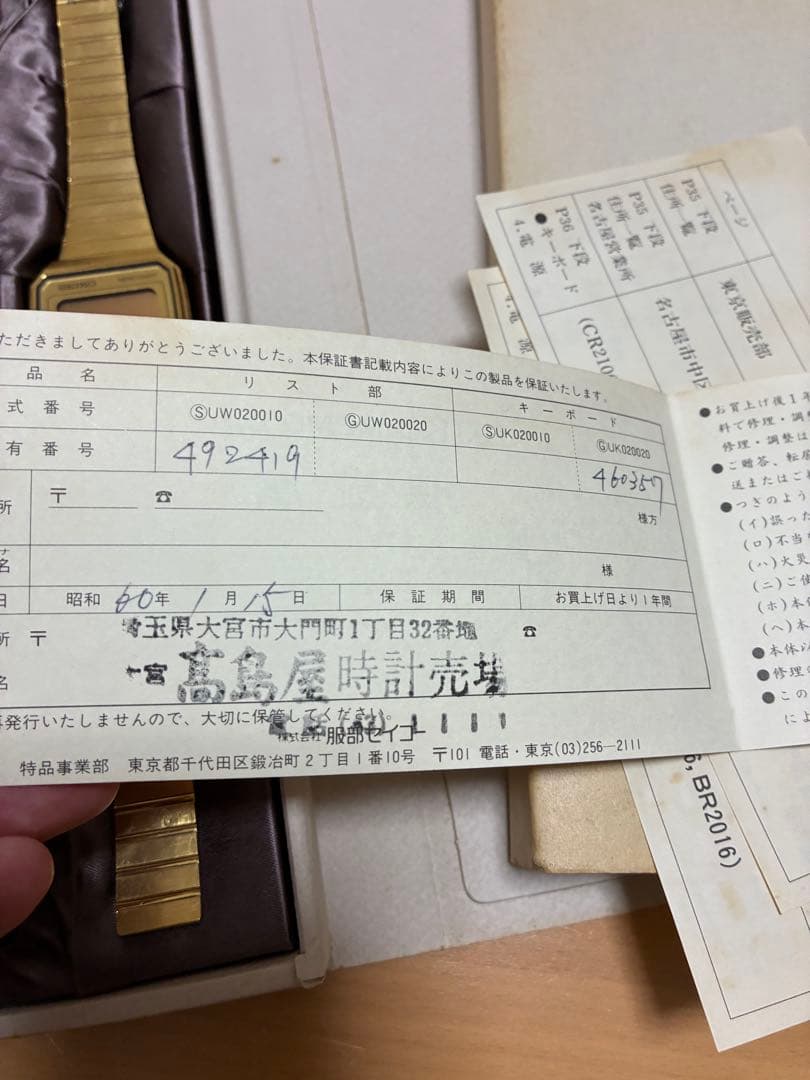 ただきましてありがとうございました。本保証書記載内容によりこの製品を保証いたします。
品名 リスト部 キーボード
式番号 ⓈUW020010 ⒼUW020020 ⓈUK020010 ⒼUK020020
有番号 492419 460357
所 〒 ☎ 様方
名 様
日 昭和60年1月15日 保証期間 お買上げ日より1年間
所 〒 埼玉県大宮市大門町1丁目32番地 ☎
名 大宮 髙島屋時計売場
再発行いたしませんので、大切に保管してください。
1111
株式会社 服部セイコー
特品事業部 東京都千代田区鍛冶町2丁目1番10号 〒101 電話・東京(03)256-2111
ページ
P35 下段 住所一覧 東京販売部
P35 下段 住所一覧 名古屋営業所 名古屋市中区
P36 下段 ●キーボード 4.電源 (CR210
4.電源
, BR2016)
●お買上げ後1年
料で修理・調整
修理・調整は
●ご贈答、転居
送またはご
●つぎのよう
(イ)誤った
(ロ)不当な
(ハ)火災
(ニ)ご使
(ホ)本保
(ヘ)本
●本体以
●修理の
●この
によ